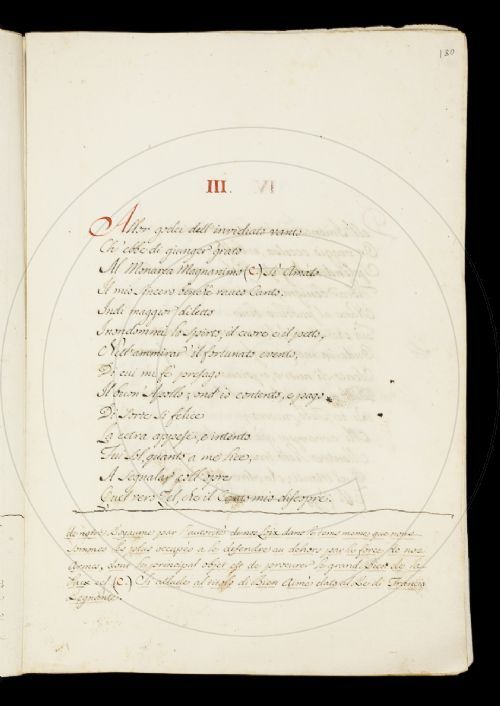 130
III.
Allor godei dell'invidiato vanto
Ch'ebbe di giunger grato
Al Monarca Magnanimo (C) Sì Amato
Il mio sincero benchè rauco Canto,
Indi maggior diletto
Inondommi lo Spirto, il cuore, e il petto,
Nell'ammirar il fortunato evento,
Di cui mi fè presago
Il buon' Apollo; ond'io contento, e pago
Di Sorte sì felice
La cetra appesi, e intento
Fui sol, quanto a me lice,
A Segnalar coll'opre
Quel vero Zel, che il Canto mio discopre.
de notre Royaume par l'autorité de nos Loix dans le tems meme que nous
sommes les plus occupés a le defendre au dehors par la force de nos
Armes, dont le principal objet est de procurer le grand Bien de la
Paix (C) Si allude al titolo di Bien Aimé dato al Re di Francia
Regnante.